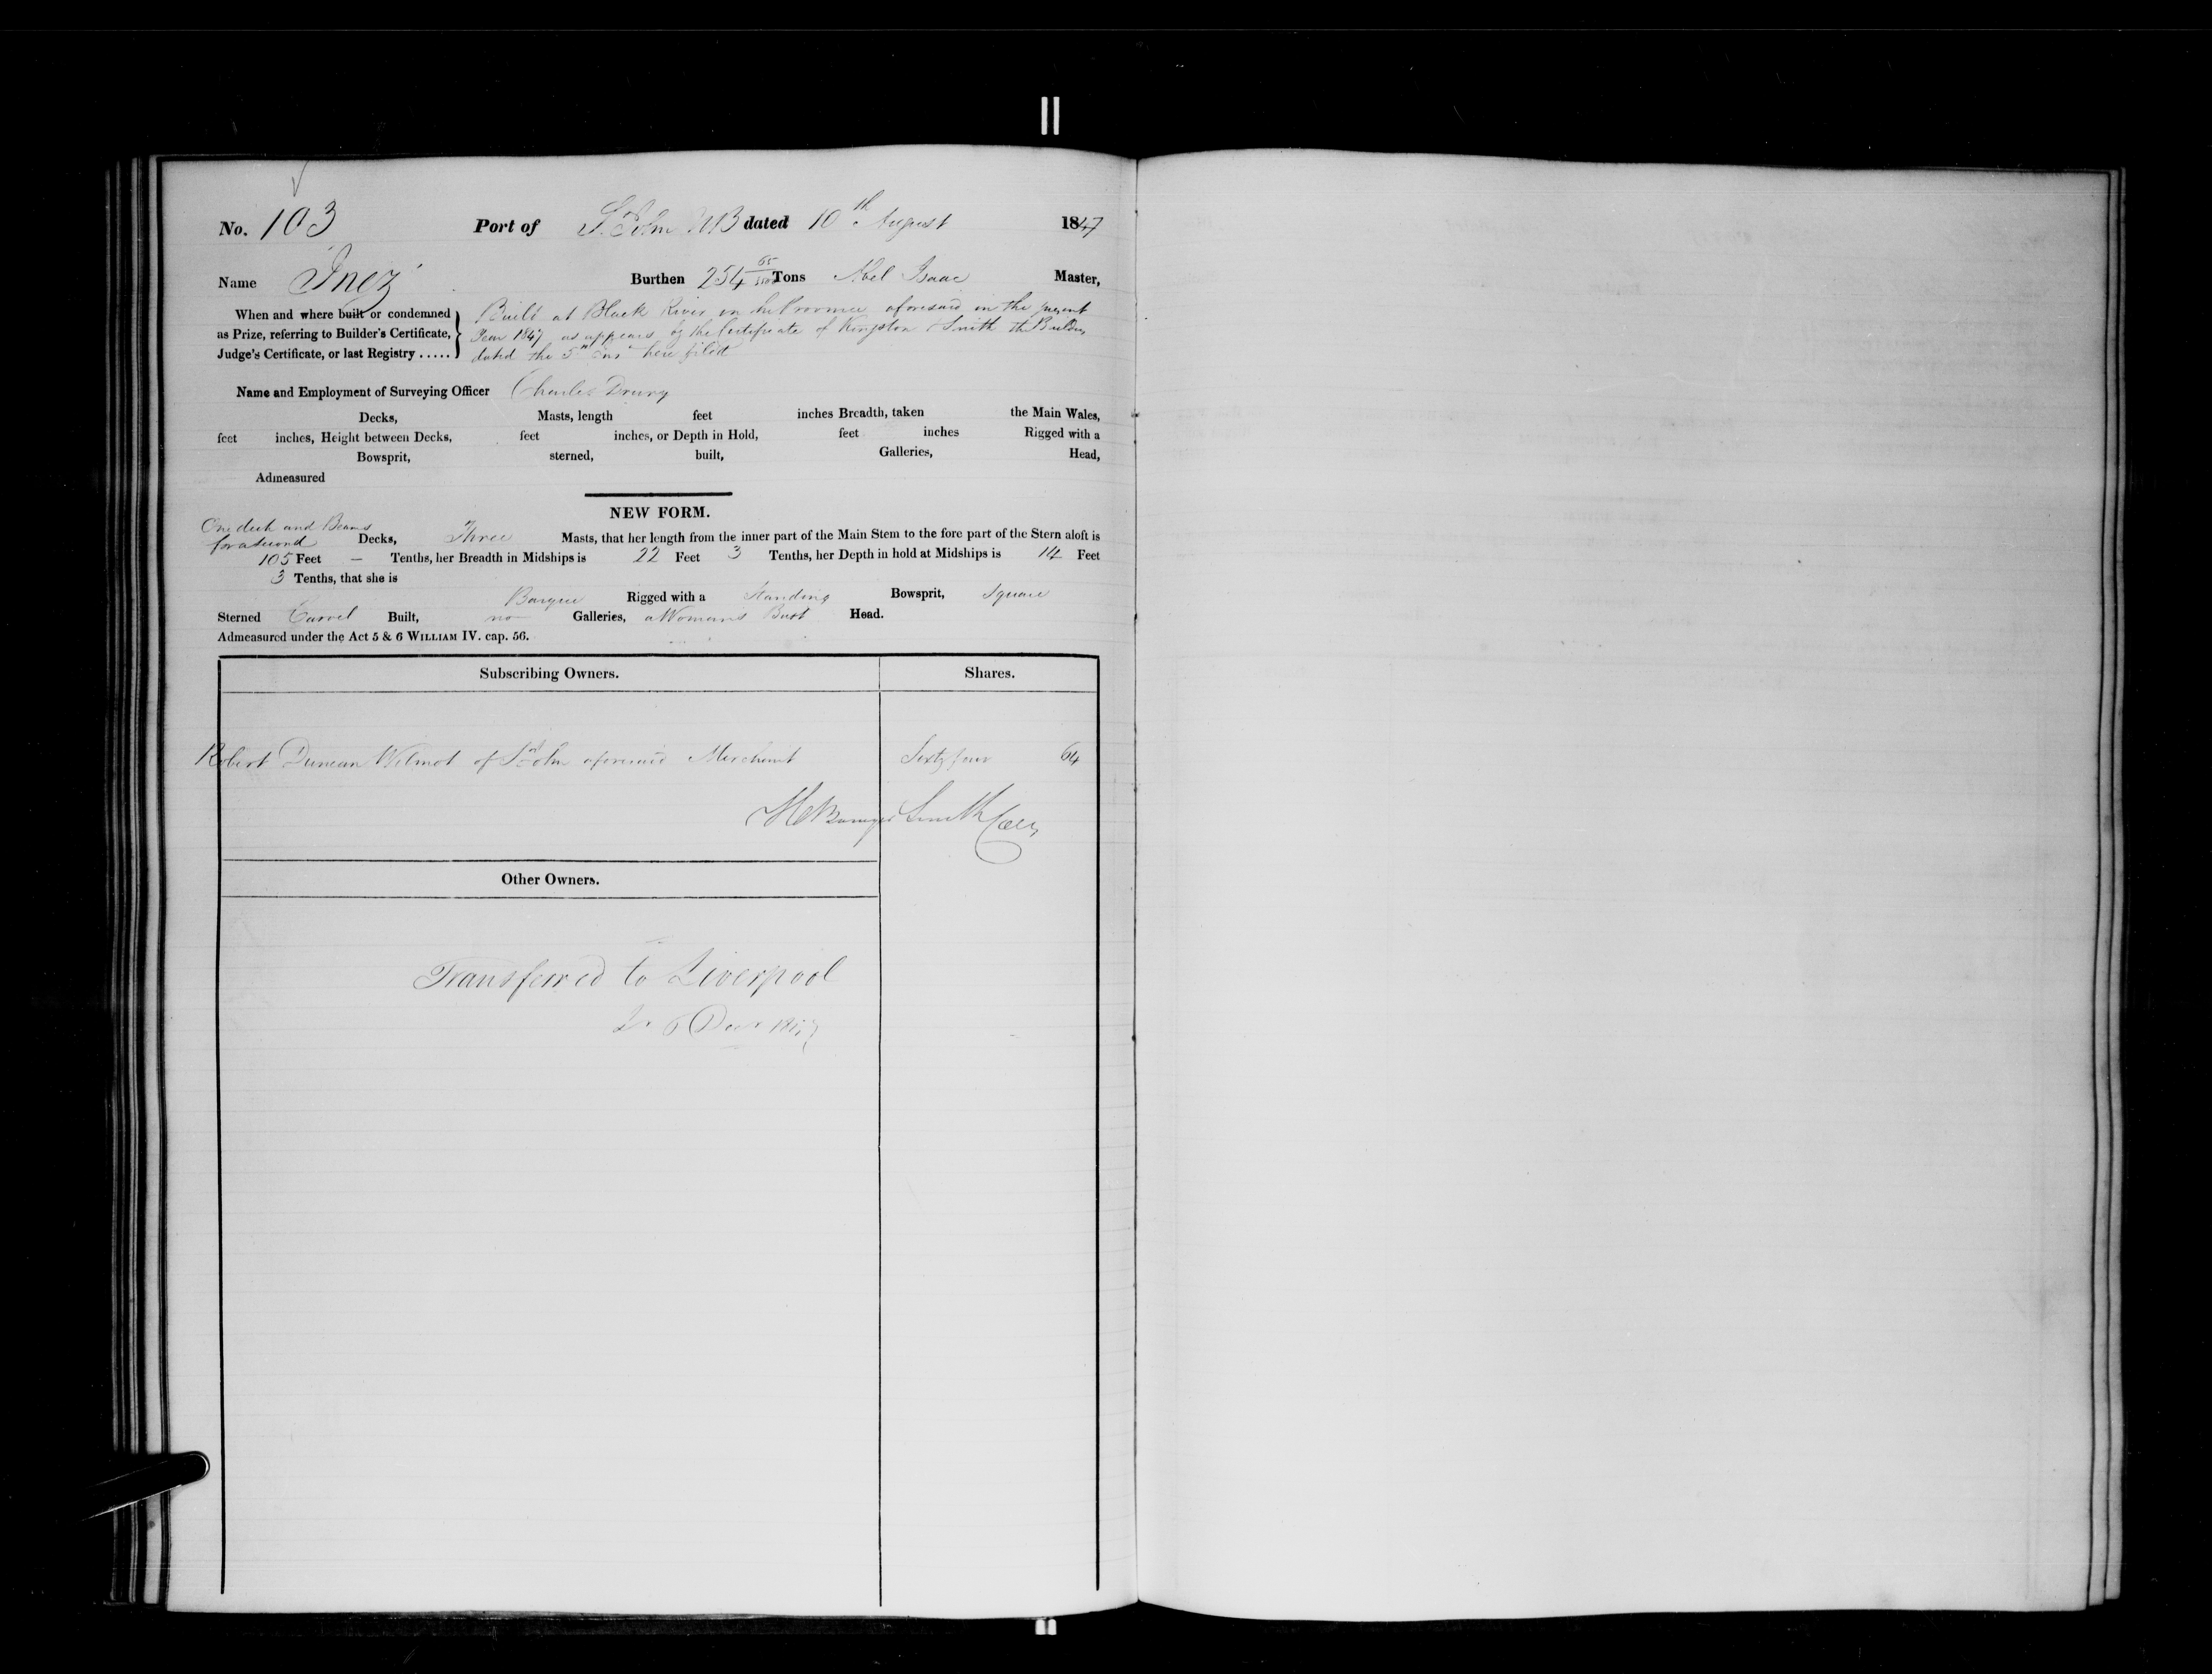 No. 103 Port of St. John NB dated 10th August 1847
Name Inez Burthen 254 65/3500 Tons Abel Isaac Master,
When and where built or condemned as Prize, referring to Builder's Certificate, Judge's Certificate, or last Registry .....
Built at Black River in the Province aforesaid in the present
Year 1847 as appears by the Certificate of Kingston Smith the Builder
dated the 5th Inst here filed
Name and Employment of Surveying Officer Charles Drury
Decks, Masts, length feet inches Breadth, taken the Main Wales,
feet inches, Height between Decks, feet inches, or Depth in Hold, feet inches Rigged with a
Bowsprit, sterned, built, Galleries, Head,
Admeasured
NEW FORM.
One deck and Beams
for a second Decks, Three Masts, that her length from the inner part of the Main Stem to the fore part of the Stern aloft is
105 Feet — Tenths, her Breadth in Midships is 22 Feet 3 Tenths, her Depth in hold at Midships is 14 Feet
3 Tenths, that she is
Barque Rigged with a Standing Bowsprit, Square
Sterned Carvel Built, no Galleries, a Woman's Bust Head.
Admeasured under the Act 5 & 6 WILLIAM IV. cap. 56.
Subscribing Owners. Shares.
Robert Duncan Wilmot of St John aforesaid Merchant Sixty four 64
Smith
Other Owners.
Transferred to Liverpool
6 Decr 1847